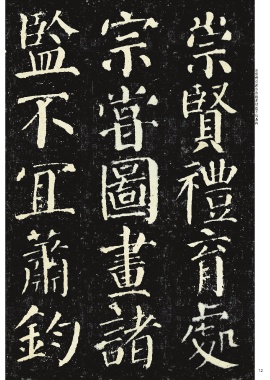 崇賢禮育處
宗嘗圖畫諸
監不宜蕭鈞
12